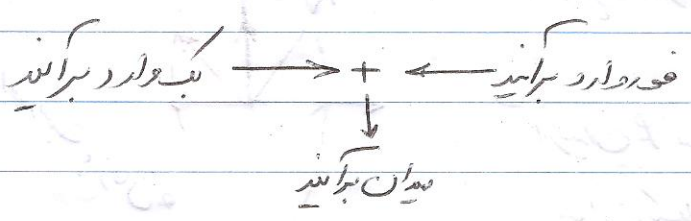 فوروارد برآیند → + ← بک وارد برآیند
↓
میدان برآیند